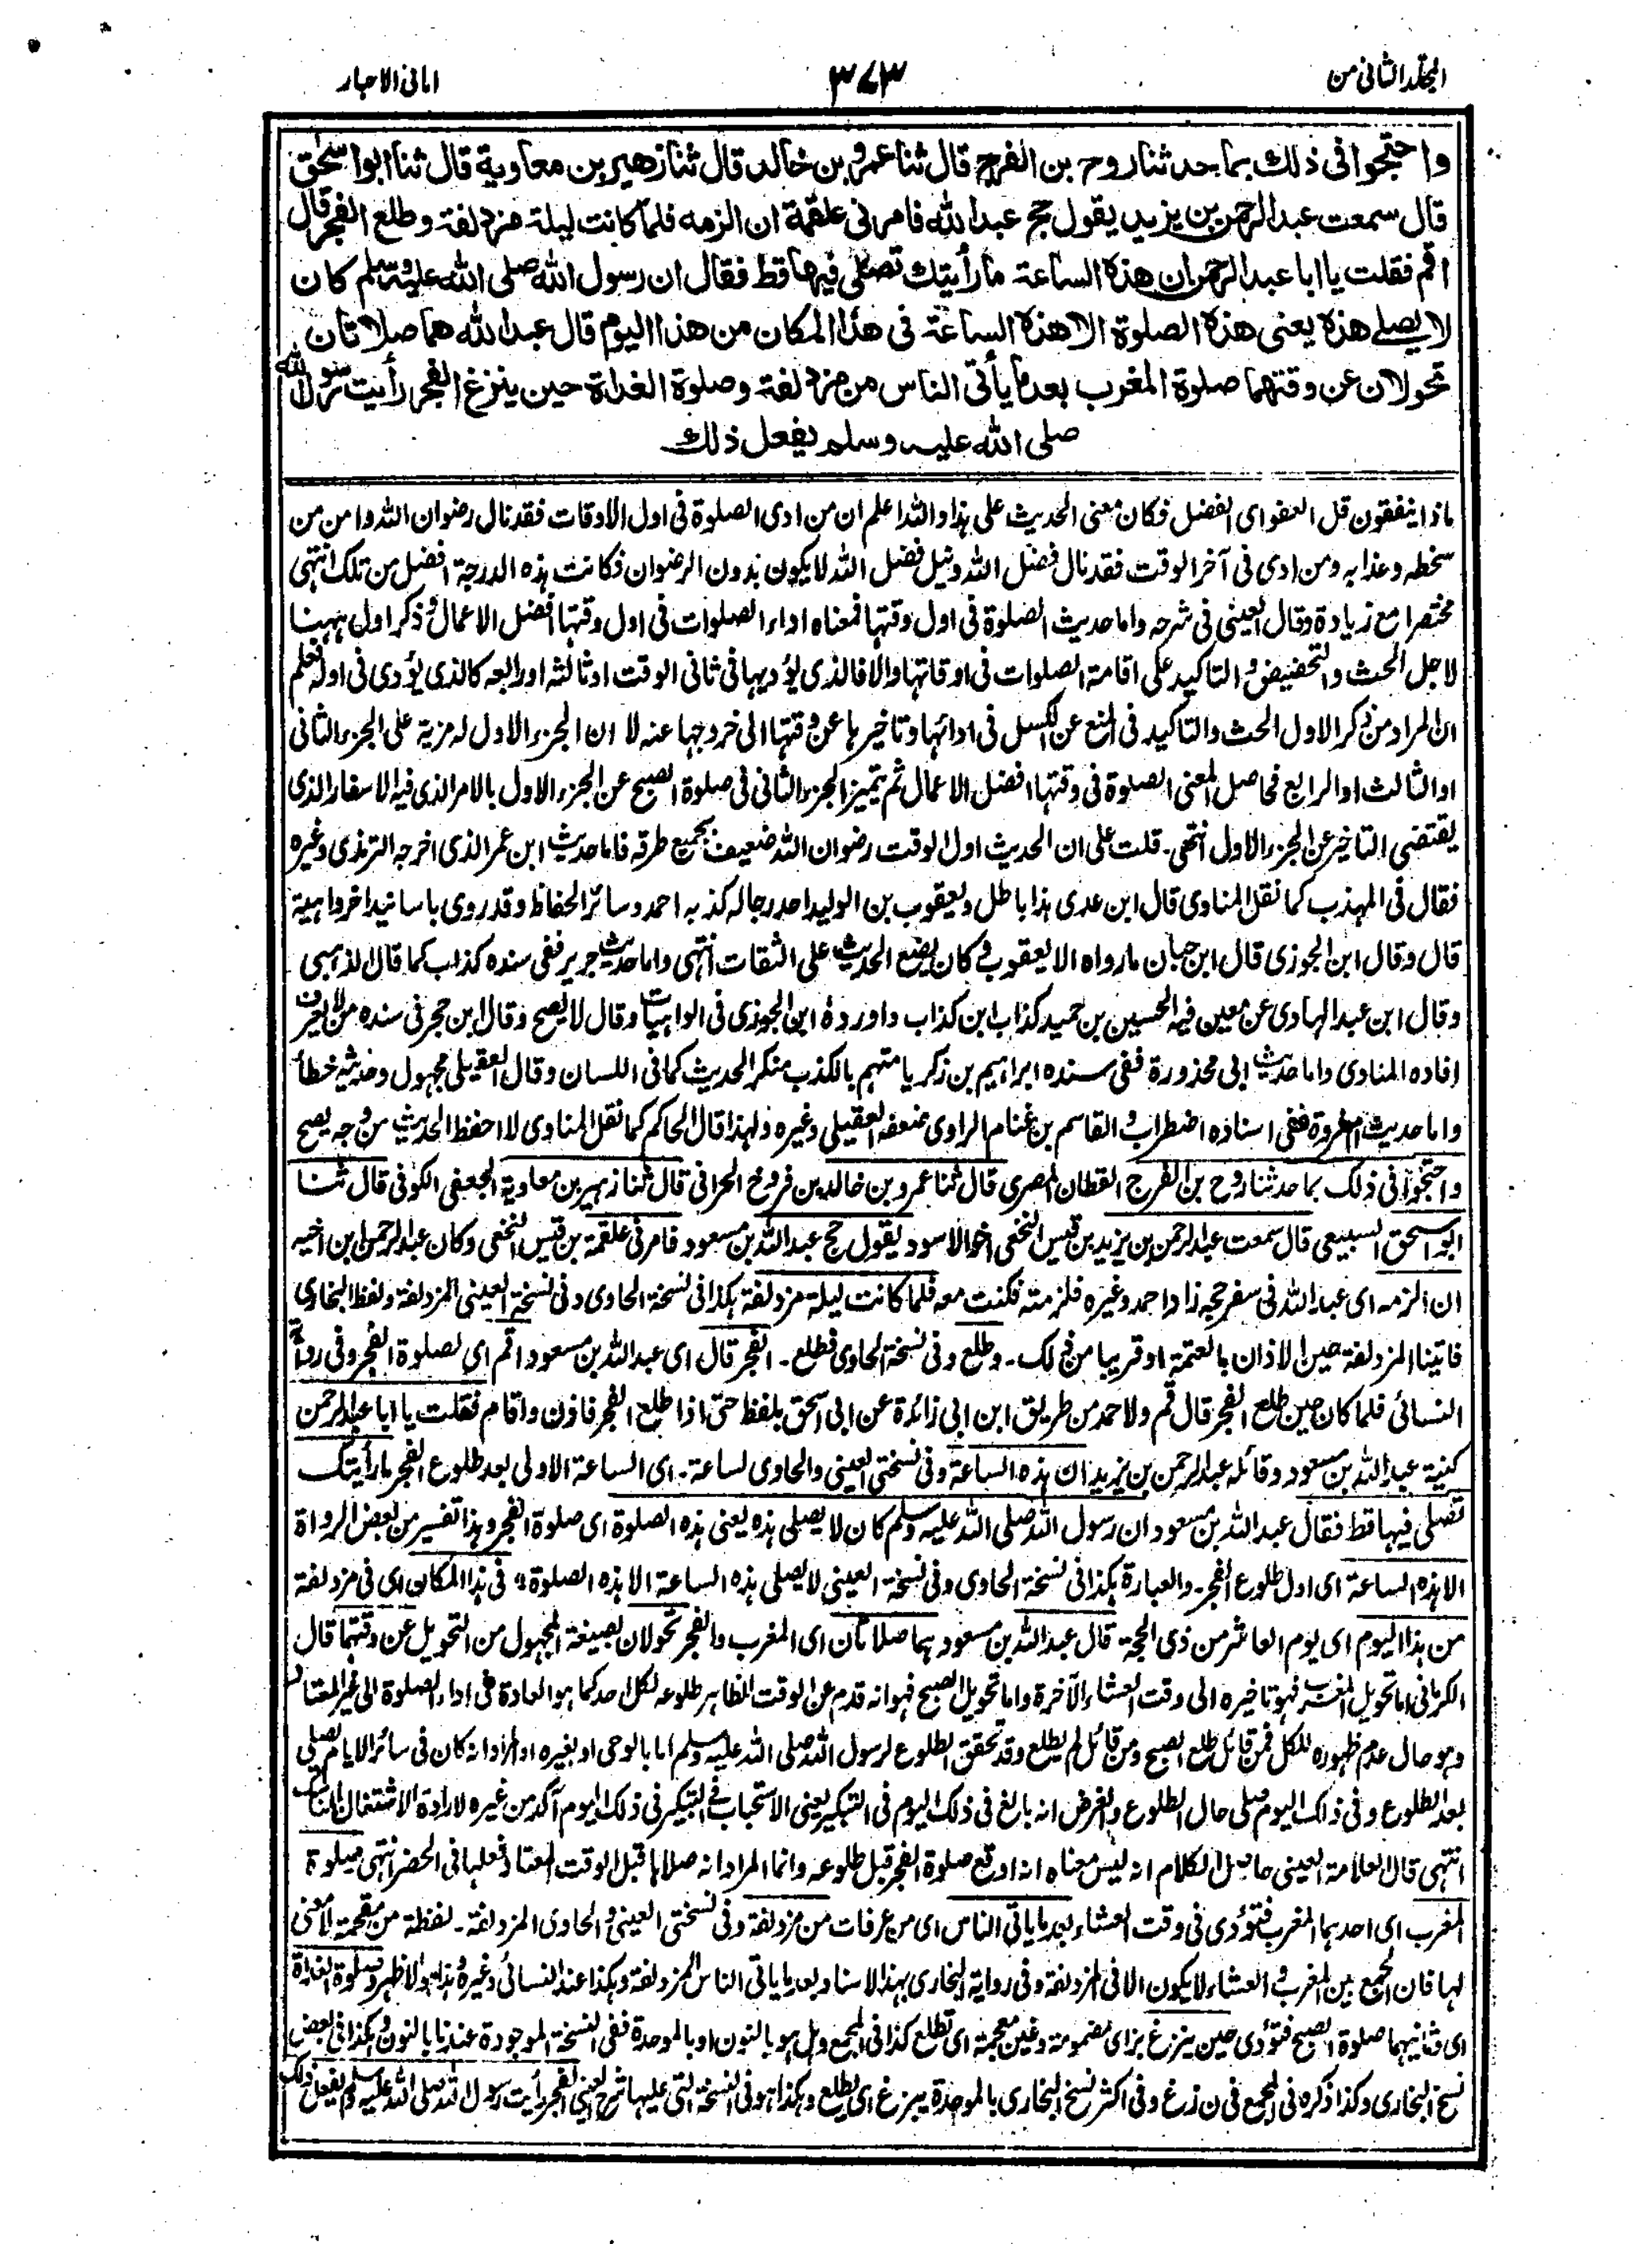 المجلد الثاني من
٣٧٣
اماني الاحبار
واحتجوا في ذلك بما حدثنا روح بن الفرج قال ثنا عمرو بن خالد قال ثنا زهير بن معاوية قال ثنا ابو اسحق
قال سمعت عبد الرحمن بن يزيد يقول حج عبد الله فامرني علقمة ان الزمه فلما كانت ليلة مزدلفة وطلع الفجر قال
اقم فقلت يا ابا عبد الرحمن ان هذه الساعة ما رأيتك تصلي فيها قط فقال ان رسول الله صلى الله عليه وسلم كان
لا يصلي هذه يعني هذه الصلوة الا هذه الساعة في هذا المكان من هذا اليوم قال عبد الله هما صلاتان
تحولان عن وقتهما صلوة المغرب بعد ما يأتي الناس من مزدلفة وصلوة الغداة حين ينزغ الفجر رأيت رسول الله
صلى الله عليه وسلم يفعل ذلك
ماذا ينفقون قل العفو اي الفضل فكان معنى الحديث على هذا والله اعلم ان من ادى الصلوة في اول الاوقات فقد نال رضوان الله وامن من
سخطه وعذابه ومن ادى في آخر الوقت فقد نال فضل الله ونيل فضل الله لا يكون بدون الرضوان فكانت هذه الدرجة افضل من تلك انتهى
مختصرا مع زيادة وقال العيني في شرحه واما حديث الصلوة في اول وقتها فمعناه اداء الصلوات في اول وقتها افضل الاعمال وذكر اول ههنا
لاجل الحث والتحضيض والتاكيد على اقامة الصلوات في اوقاتها والا فالذي يؤديها في ثاني الوقت او ثالثه او رابعه كالذي يؤدي في اوله فعلم
ان المراد من ذكر الاول الحث والتاكيد في المنع عن الكسل في ادائها وتاخيرها عن وقتها الى خروجها عنه لا ان الجزء الاول له مزية على الجزء الثاني
او الثالث او الرابع فحاصل المعنى الصلوة في وقتها افضل الاعمال ثم يتميز الجزء الثاني في صلوة الصبح عن الجزء الاول بالامر الذي فيه الاسفار الذي
يقتضي التاخير عن الجزء الاول انتهى۔ قلت على ان الحديث اول الوقت رضوان الله ضعيف بجميع طرقه فاما حديث ابن عمر الذي اخرجه الترمذي وغيره
فقال في المهذب كما نقل المناوي قال ابن عدي هذا باطل ويعقوب بن الوليد احد رجاله كذبه احمد وسائر الحفاظ وقد روي باسانيد اخر واهية
قال وقال ابن الجوزي قال ابن حبان ما رواه الا يعقوب وكان يضع الحديث على الثقات انتهى واما حديث جرير ففي سنده كذاب كما قال الذهبي
وقال ابن عبد الهادي عن معين فيه الحسين بن حميد كذاب ابن كذاب واورده ابن الجوزي في الواهيات وقال لا يصح وقال ابن حجر في سنده من لا يعرف
افاده المناوي واما حديث ابي محذورة ففي سنده ابراهيم بن زكريا متهم بالكذب منكر الحديث كما في اللسان وقال العقيلي مجهول وحديثه خطأ
واما حديث ام فروة ففي اسناده اضطراب والقاسم بن غنام الراوي ضعفه العقيلي وغيره ولهذا قال الحاكم كما نقل المناوي لا احفظ الحديث من وجه يصح
واحتجوا في ذلك بما حدثنا روح بن الفرج القطان المصري قال ثنا عمرو بن خالد بن فروخ الحراني قال ثنا زهير بن معاوية الجعفي الكوفي قال ثنا
ابو اسحق السبيعي قال سمعت عبد الرحمن بن يزيد بن قيس النخعي اخو الاسود يقول حج عبد الله بن مسعود فامرني علقمة بن قيس النخعي وكان عبد الرحمن ابن اخيه
ان الزمه اي عبد الله في سفر حجه زاد احمد وغيره فلزمته فكنت معه فلما كانت ليلة مزدلفة هكذا في نسخة الحاوي وفي نسخة العيني المزدلفة ولفظ البخاري
فاتينا المزدلفة حين الاذان بالعتمة او قريبا من ذلك۔ وطلع وفي نسخة الحاوي فطلع۔ الفجر قال اي عبد الله بن مسعود اقم اي لصلوة الفجر وفي رواية
النسائي فلما كان حين طلع الفجر قال قم ولاحمد من طريق ابن ابي زائدة عن ابي اسحق بلفظ حتى اذا طلع الفجر فاذن واقام فقلت يا ابا عبد الرحمن
كنية عبد الله بن مسعود وقائله عبد الرحمن بن يزيد ان هذه الساعة وفي نسختي العيني والحاوي لساعة۔ اي الساعة الاولى بعد طلوع الفجر ما رأيتك
تصلي فيها قط فقال عبد الله بن مسعود ان رسول الله صلى الله عليه وسلم كان لا يصلي هذه يعني هذه الصلوة اي صلوة الفجر وهذا تفسير من بعض الرواة
الا هذه الساعة اي اول طلوع الفجر۔ والعبارة هكذا في نسخة الحاوي وفي نسخة العيني لا يصلي هذه الساعة الا هذه الصلوة۔ في هذا المكان اي في مزدلفة
من هذا اليوم اي يوم العاشر من ذي الحجة قال عبد الله بن مسعود هما صلاتان اي المغرب والفجر تحولان بصيغة المجهول من التحويل عن وقتهما قال
الكرماني اما تحويل المغرب فهو تاخيره الى وقت العشاء الآخرة واما تحويل الصبح فهو انه قدم عن الوقت الظاهر طلوعه لكل احد كما هو العادة في اداء الصلوة الى غير المعتاد
وهو حال عدم ظهوره للكل فمن قائل طلع الصبح ومن قائل لم يطلع وقد تحقق الطلوع لرسول الله صلى الله عليه وسلم اما بالوحي او بغيره او المراد انه كان في سائر الايام يصلي
بعد الطلوع وفي ذلك اليوم صلى حال الطلوع والغرض انه بالغ في ذلك اليوم في التبكير يعني الاستحباب في التبكير في ذلك اليوم آكد من غيره لارادة الاشتغال بالمناسك
انتهى قال العلامة العيني حاصل الكلام انه ليس معناه انه اوقع صلوة الفجر قبل طلوعه وانما المراد انه صلاها قبل الوقت المعتاد فعلها في الحضر انتهى صلوة
المغرب اي احدهما المغرب فتؤدى في وقت العشاء بعد ما ياتي الناس اي من عرفات من مزدلفة وفي نسختي العيني والحاوي المزدلفة۔ لفظة من مقحمة لا معنى
لها فان الجمع بين المغرب والعشاء لا يكون الا في المزدلفة وفي رواية البخاري بهذا الاسناد بعد ما ياتي الناس المزدلفة وهكذا عند النسائي وغيره وهذا هو الاظهر وصلوة الغداة
اي ثانيهما صلوة الصبح فتؤدى حين ينزغ بزاي مضمومة وغين معجمة اي تطلع كذا في المجمع وهل هو بالنون او بالموحدة ففي النسخة الموجودة عندنا بالنون وهكذا في بعض
نسخ البخاري وكذا ذكره في المجمع في ن زغ وفي اكثر نسخ البخاري بالموحدة يبزغ اي يطلع وهكذا هو في النسخة التي عليها شرح العيني الفجر رأيت رسول الله صلى الله عليه وسلم يفعل ذلك